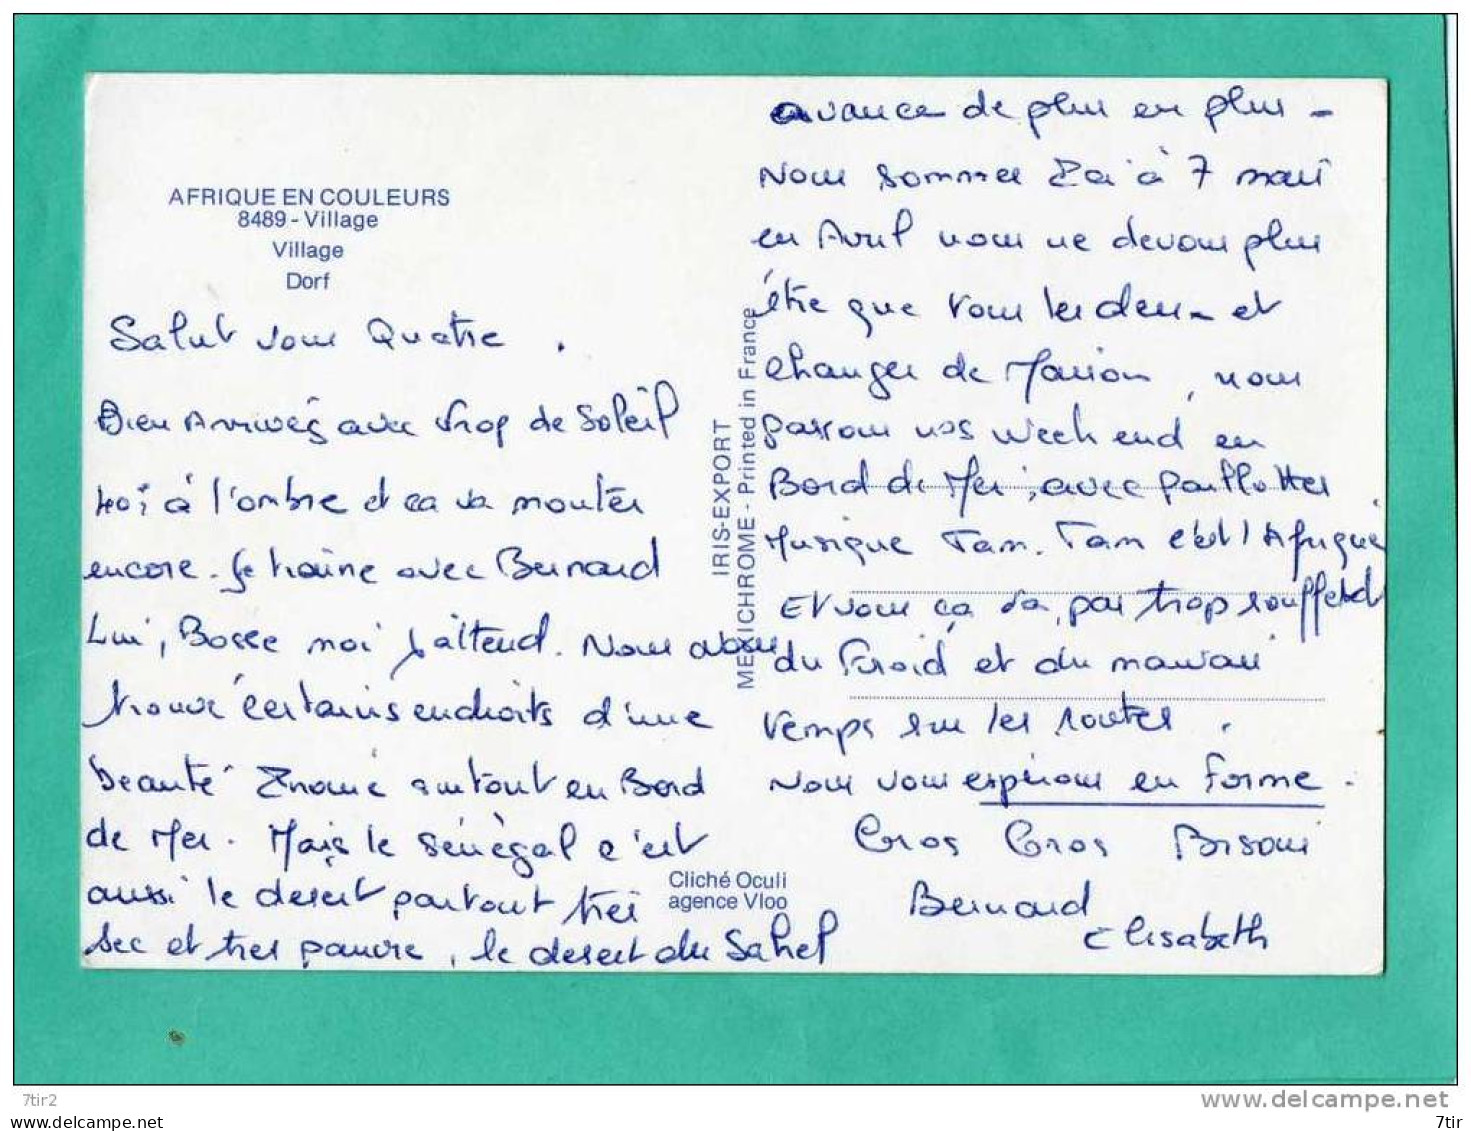 AFRIQUE EN COULEURS
8489 - Village
Village
Dorf
Salut vous Quatre.
Bien Arrivés avec trop de Soleil
40° à l'ombre et ça va monter
encore. Je traine avec Bernard
Lui, Bosse moi j'attend. Nous avons
trouvé certains endroits d'une
beauté Enorme surtout en Bord
de Mer. Mais le Sénégal c'est
aussi le desert partout très
sec et tres pauvre, le desert du Sahel
IRIS-EXPORT
MEXICHROME - Printed in France
Cliché Oculi
agence Vloo
avance de plus en plus -
Nous sommes à 7 mais
en Avril nous ne devons plus
être que tous les deux et
changer de Maison, nous
passons nos week end en
Bord de Mer, avec paillottes
Musique Tam. Tam c'est l'Afrique
Et vous ça va, pas trop souffert
du Froid et du mauvais
temps sur les routes.
Nous vous espérons en Forme.
Gros Gros Bisous
Bernard
Elisabeth
7tir2
www.delcampe.net
7tir